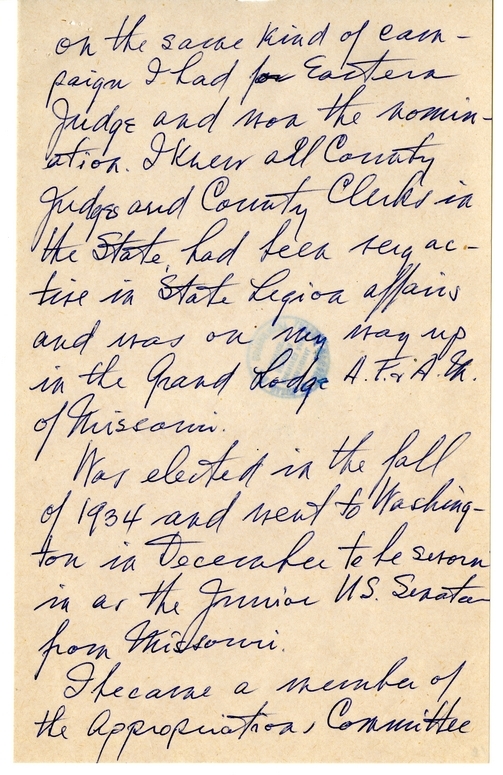 on the same kind of cam-
paign I had for Eastern
Judge and won the nomin-
ation. I knew all County
Judges and County Clerks in
the State, had been very ac-
tive in State Legion affairs
and was on my way up
in the Grand Lodge A.F.&A.M.
of Missouri.
Was elected in the fall
of 1934 and went to Washing-
ton in December to be sworn
in as the Junior U.S. Senator
from Missouri.
I became a member of
the Appropriations Committee